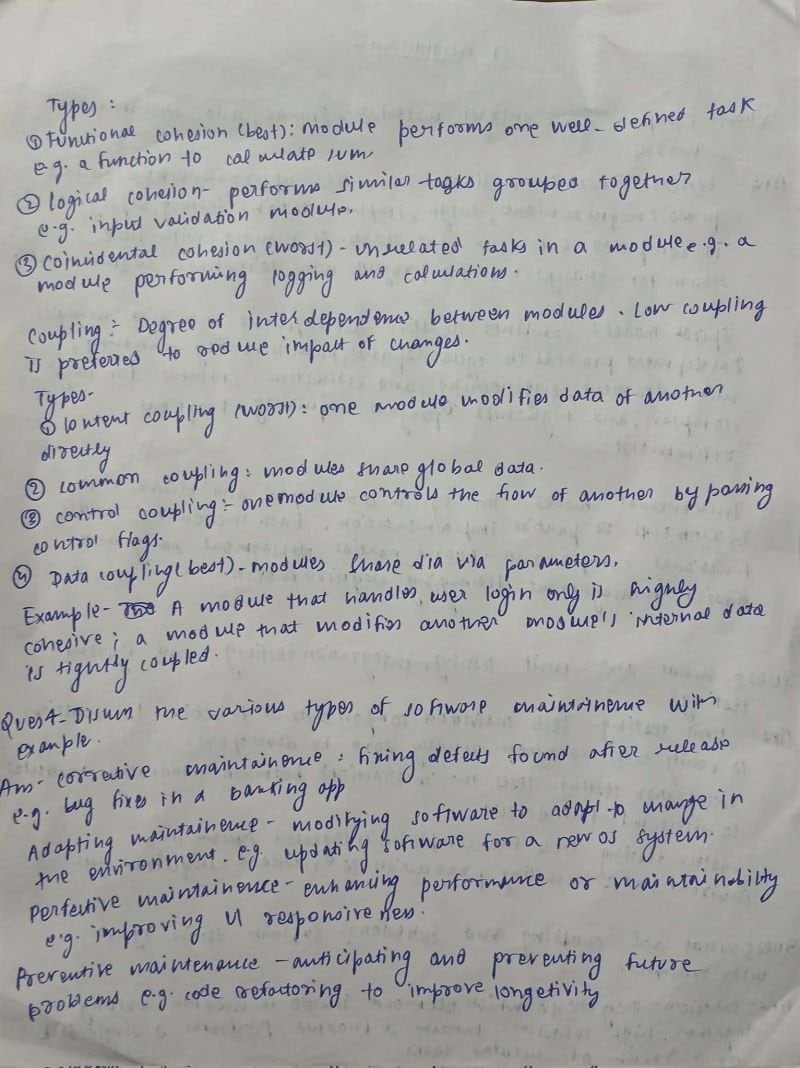 Types :
① Functional cohesion (best): module performs one well-defined task
e.g. a function to calculate sum
② logical cohesion- performs similar tasks grouped together
e.g. input validation module.
③ Coincidental cohesion (worst) - unrelated tasks in a module e.g. a
module performing logging and calculations.
Coupling :- Degree of interdependence between modules. Low coupling
is preferred to reduce impact of changes.
Types-
① Content coupling (worst): one module modifies data of another
directly
② common coupling: modules share global data.
③ control coupling :- one module controls the flow of another by passing
control flags.
④ Data coupling (best) - modules share dia via parameters.
Example- A module that handles user login only is highly
cohesive ; a module that modifies another module's internal data
is tightly coupled.
Ques4- Discuss the various types of software maintainence with
example.
Ans- corrective maintainence : fixing defects found after release
e.g. bug fixes in a banking app
Adapting maintainence - modifying software to adapt to change in
the environment. e.g. updating software for a new OS system.
Perfective maintainence - enhancing performance or maintainability
e.g. improving UI responsiveness.
Preventive maintenance - anticipating and preventing future
problems e.g. code refactoring to improve longetivity